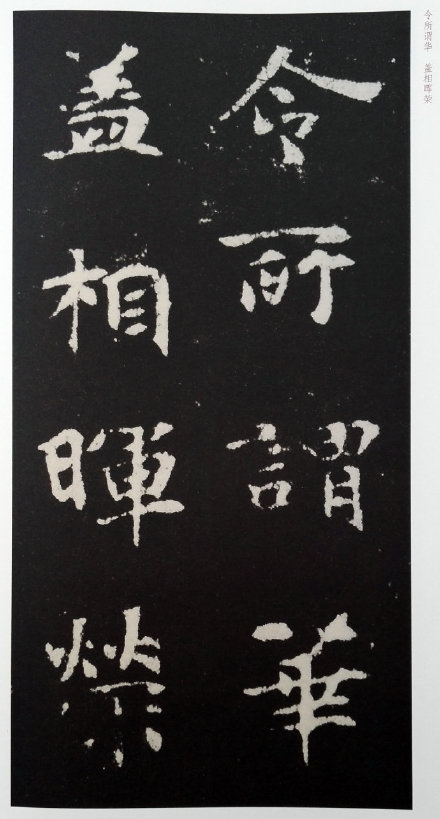 令所谓华 盖相晖荣
令所謂華
盖相暉榮